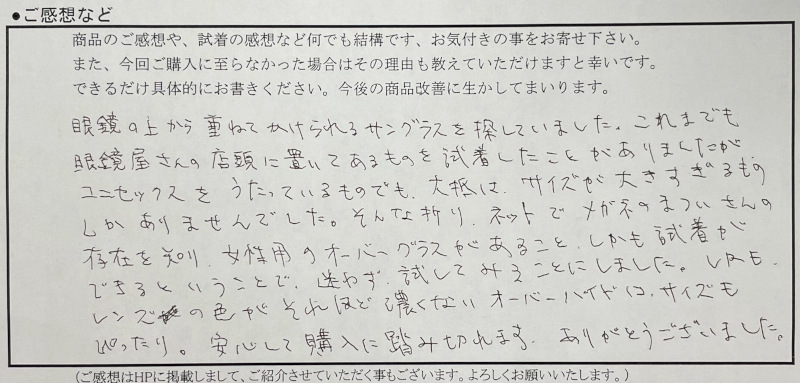 ●ご感想など
商品のご感想や、試着の感想など何でも結構です、お気付きの事をお寄せ下さい。
また、今回ご購入に至らなかった場合はその理由も教えていただけますと幸いです。
できるだけ具体的にお書きください。今後の商品改善に生かしてまいります。
眼鏡の上から重ねてかけられるサングラスを探していました。これまでも
眼鏡屋さんの店頭に置いてあるものを試着したことがありましたが、
ユニセックスをうたっているものでも、大抵は、サイズが大きすぎるもの
しかありませんでした。そんな折り、ネットでメガネのまついさんの
存在を知り、女性用のオーバーグラスがあること、しかも試着が
できるということで、迷わず、試してみることにしました。しかも、
レンズの色がそれほど濃くないオーバーハイドは、サイズも
ぴったり。安心して購入に踏み切れます。ありがとうございました。
(ご感想はHPに掲載しまして、ご紹介させていただく事もございます。よろしくお願いいたします。)